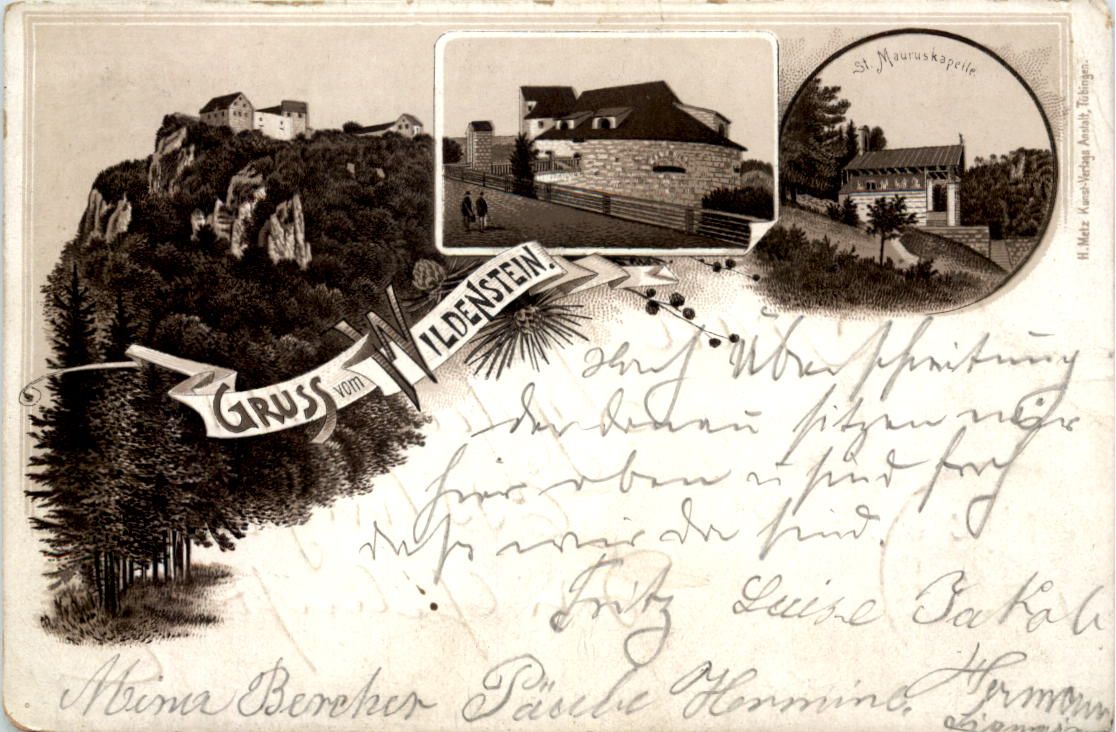 St. Mauruskapelle.
H. Metz Kunst-Verlags Anstalt, Tübingen.
GRUSS vom WILDENSTEIN!
Nach Überschreitung
der Donau sitzen wir
hier oben u sind froh
daß wir da sind.
Fritz Luise Jakob
Mina Bercher Hermine. Hermann